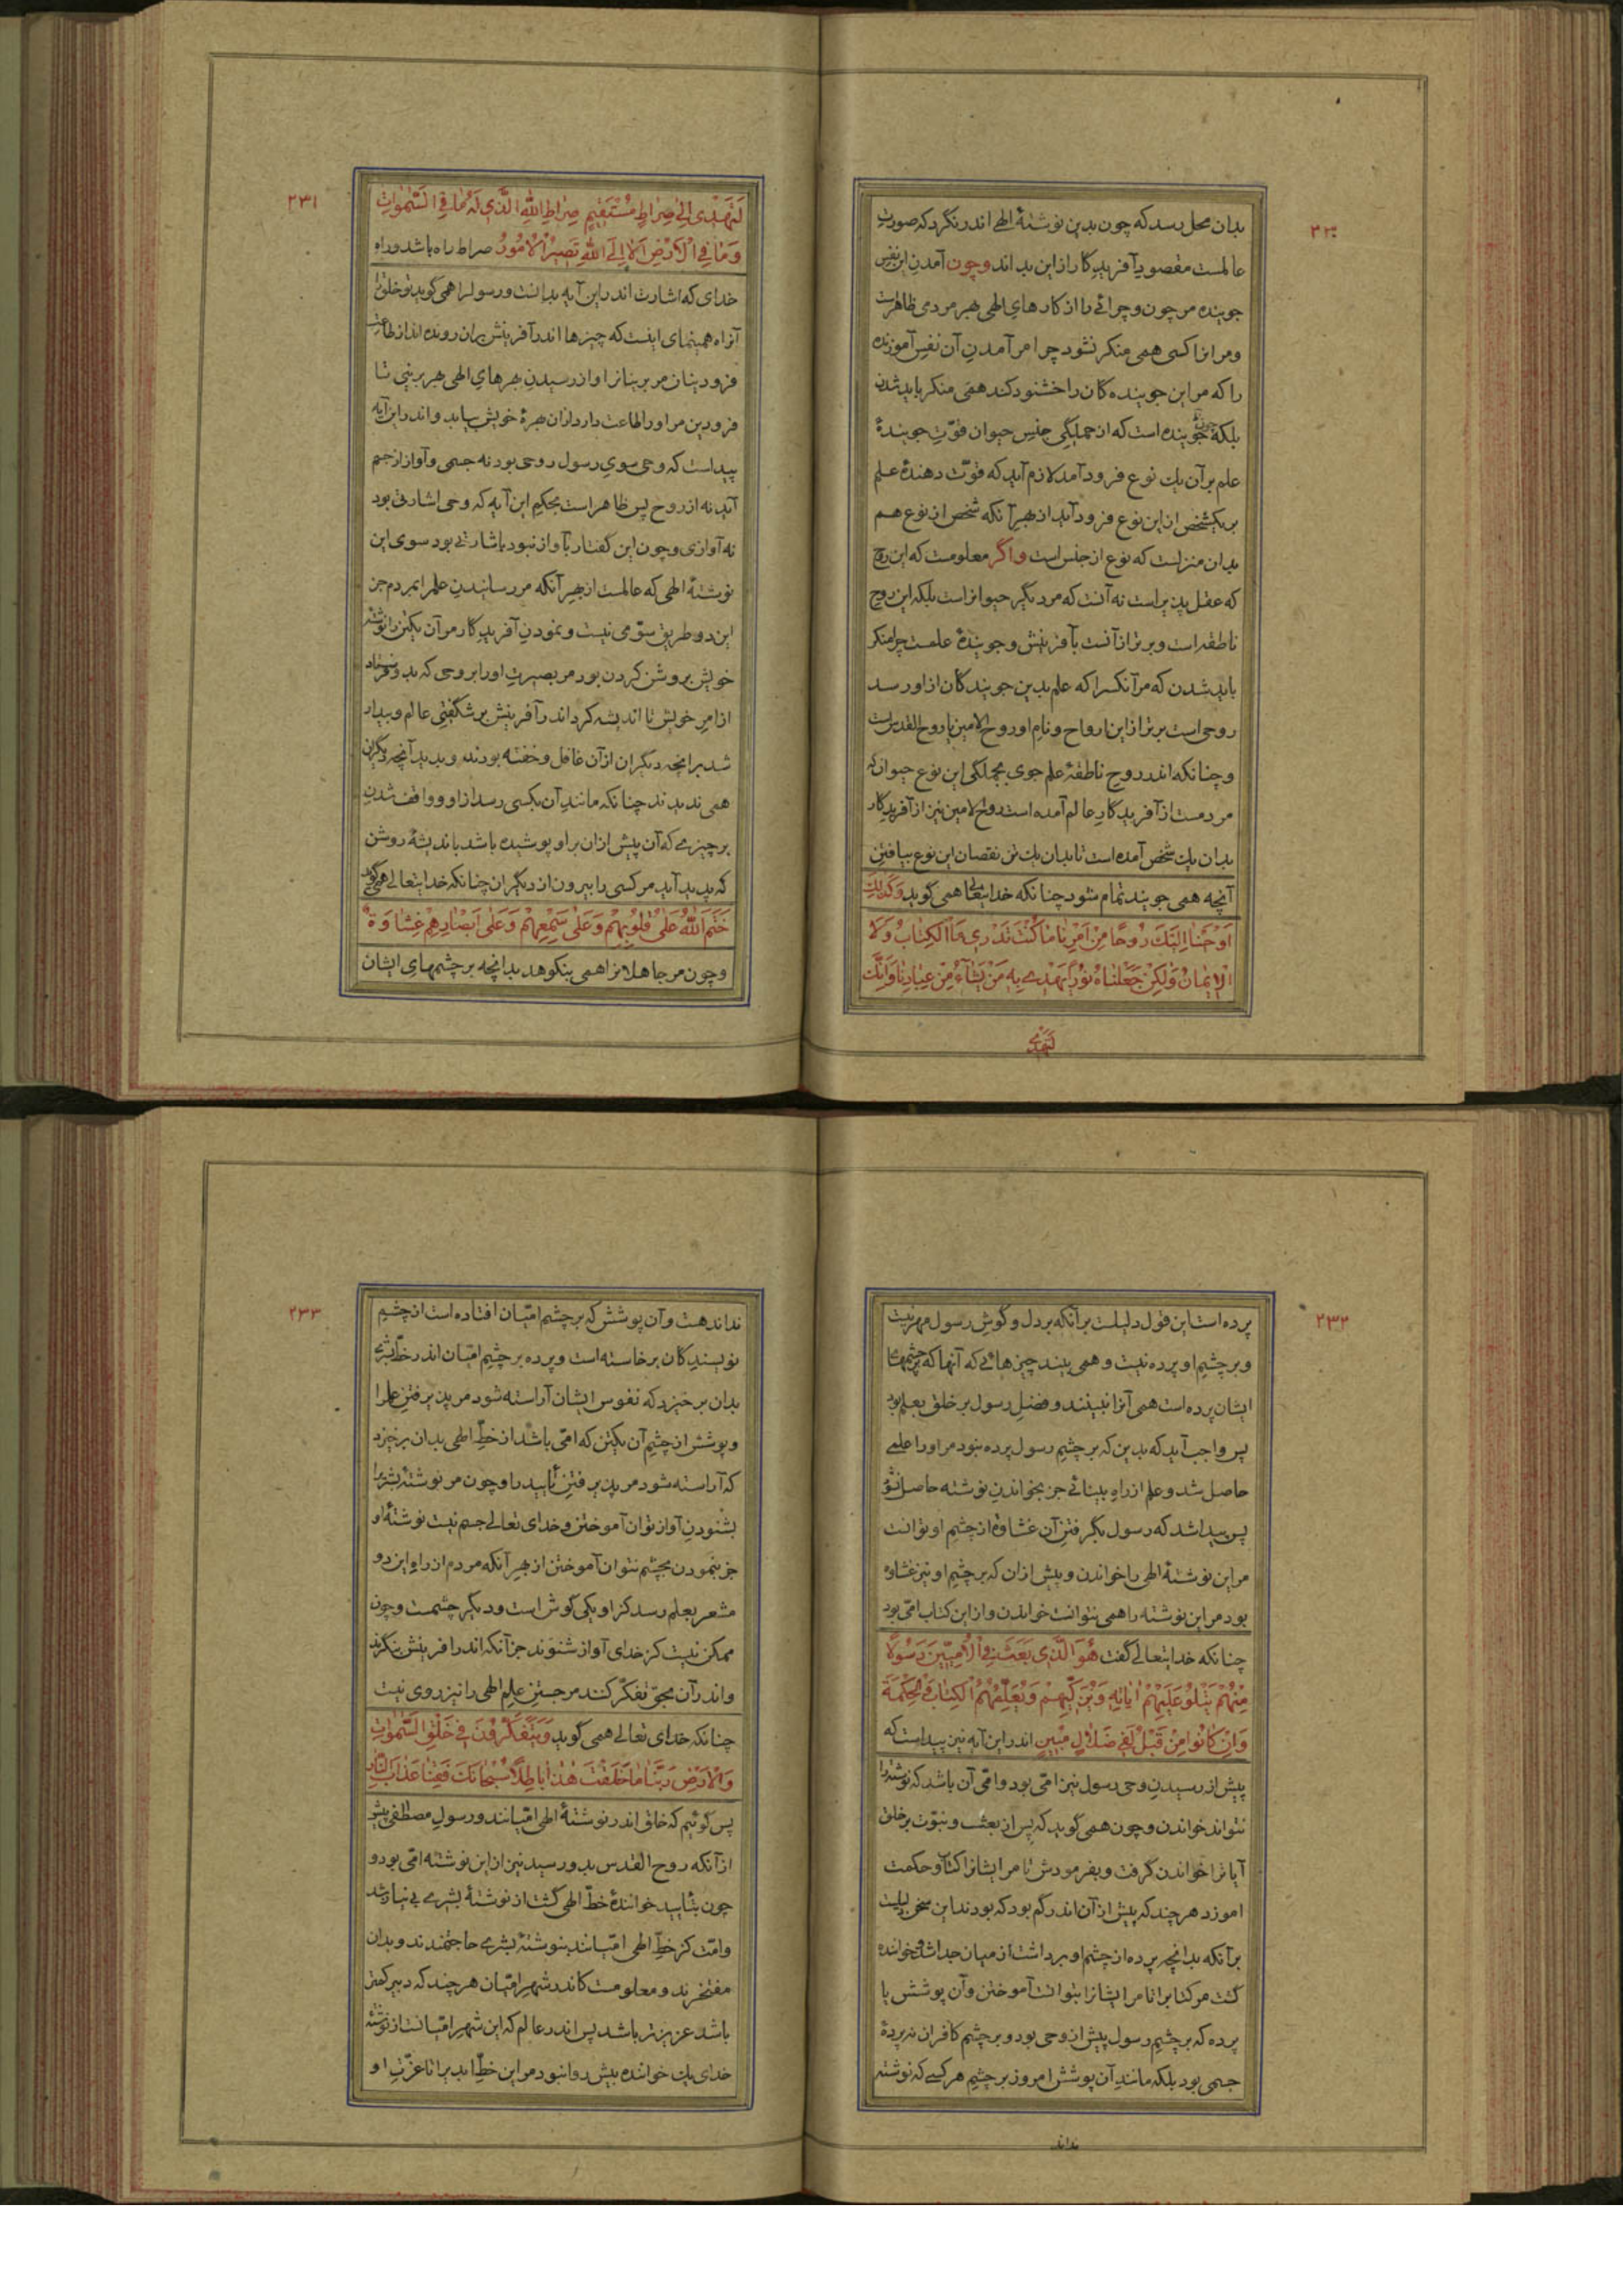 ۲۳۰
بدان محل رسد که چون بدین نوشتهٔ الهی اندر نگرد که صورت
عالمست مقصود آفریدگار از این بداند وچون آمدن این نفس
جوینده مر چون و چرائی را از کارهای الهی بهر مردمی ظاهرست
ومر انرا کسی همی منکر نشود چرا مر آمدن آن نفس آموزنده
را که مر این جوینده گان را خشنود کند همی منکر باید شدن
بلکه چون جوینده است که از جملگی جنس حیوان قوّت جویندهٔ
علم بر آن یک نوع فرود آمد لازم آید که قوّت دهندهٔ علم
بر یکشخص از این نوع فرود آید از بهر آنکه شخص از نوع هم
بدان منزلست که نوع از جنس است واگر معلومست که این روح
که عقل پذیر است نه آنست که مر دیگر حیوانراست بلکه این روح
ناطقه است و برتر از آنست بآفرینش و جویندهٔ علمست چرا منکر
باید شدن که مر آنکسرا که علم بدین جویندگان از او رسد
روحی است برتر از این ارواح و نام او روح الامین یا روح القدس است
وچنانکه اندر روح ناطقهٔ علم جوی بجملگی این نوع حیوان که
مردمست از آفریدگار عالم آمده است روح الامین نیز از آفریدگار
بدان یک شخص آمده است تا بدان یک تن نقصان این نوع بیافتن
آنچه همی جویند تمام شود چنانکه خدایتعالی همی گوید وَكَذٰلِكَ
اَوْحَيْنٰا اِلَيْكَ رُوحًا مِنْ اَمْرِنٰا مٰا كُنْتَ تَدْرِي مَا الْكِتٰابُ وَلَا
الْاِيمٰانُ وَلٰكِنْ جَعَلْنٰاهُ نُورًا نَهْدِي بِهِ مَنْ نَشٰاءُ مِنْ عِبٰادِنٰا وَاِنَّكَ
لَتَهْدِي
۲۳۱
لَتَهْدِي اِلٰى صِرٰاطٍ مُسْتَقِيمٍ صِرٰاطِ اللّٰهِ الَّذِي لَهُ مٰا فِي السَّمٰوٰاتِ
وَمٰا فِي الْاَرْضِ اَلَا اِلَى اللّٰهِ تَصِيرُ الْاُمُورُ صراط راه باشد وراه
خدای که اشارت اندر این آیه بدانست و رسولرا همی گوید تو خلق را
آنراه همینمای اینست که چیزها اندر آفرینش بران رونده اند از طاعت
فرودینان مر برینانرا و از رسیدن بهرهای الهی هر برینی تا
فرودین مر اورا طاعت دارد از ان بهرهٔ خویش بیابد و اندر این آیه
پیداست که وحی سوی رسول روحی بود نه جسمی و آواز از جسم
آید نه از روح پس ظاهر است بحکم این آیه که وحی اشارتی بود
نه آوازی و چون این گفتار بآواز نبود باشارتی بود سوی این
نوشتهٔ الهی که عالمست از بهر آنکه مر رسانیدن علمرا بمردم جز
این دو طریق سوّمی نیست و نمودن آفریدگار مر آن یکتن را نوشته
خویش بروشن کردن بود مر بصیرت اورا بروحی که بدو فرستاد
از امر خویش تا اندیشه کرد اندر آفرینش بر شگفتی عالم و بیدار
شد بر انچه دیگران از آن غافل و خفته بودند و بدید آنچه دیگران
همی ندیدند چنانکه مانند آن بکسی رسد از او و واقف شدن
بر چیزی که آن پیش از ان بر او پوشیده باشد باندیشهٔ روشن
که پدید آید مر کسی را بیرون از دیگران چنانکه خدایتعالی همی گوید
خَتَمَ اللّٰهُ عَلٰى قُلُوبِهِمْ وَعَلٰى سَمْعِهِمْ وَعَلٰى اَبْصٰارِهِمْ غِشٰاوَةٌ
وچون مر جاهلانرا همی بنکوهد بدانچه بر چشمهای ایشان
۲۳۲
پرده است این قول دلیلست بر آنکه بر دل و گوش رسول مهر نیست
وبر چشم او پرده نیست و همی بیند چیزهائی که آنها که بر چشمهای
ایشان پرده است همی آنرا نبینند و فضل رسول بر خلق بعلم بود
پس واجب آید که بدین که بر چشم رسول پرده نبود مر اورا علمی
حاصل شد و علم از راه بینائی جز بخواندن نوشته حاصل نشود
پس پیدا شد که رسول بگرفتن آن غشاوه از چشم او توانست
مر این نوشتهٔ الهی را خواندن و پیش از ان که بر چشم او نیز غشاوه
بود مر این نوشته را همی نتوانست خواندن و از این کتاب امّی بود
چنانکه خدایتعالی گفت هُوَ الَّذِي بَعَثَ فِي الْاُمِّيِّينَ رَسُولًا
مِنْهُمْ يَتْلُو عَلَيْهِمْ اٰيٰاتِهِ وَيُزَكِّيهِمْ وَيُعَلِّمُهُمُ الْكِتٰابَ وَالْحِكْمَةَ
وَاِنْ كٰانُوا مِنْ قَبْلُ لَفِي ضَلٰالٍ مُبِينٍ اندر این آیه نیز پیداست که
پیش از رسیدن وحی رسول نیز امّی بود و امّی آن باشد که نوشته را
نتواند خواندن و چون همی گوید که پس از بعث و نبوّت بر خلق
آیاترا خواندن گرفت و بفرمودش تا مر ایشانرا کتاب و حکمت
اموزد هر چند که پیش از آن اندر گم بودگی بودند این سخن دلیلست
بر آنکه بدانچه پرده از چشم او برداشت از میان جدا شد و خوانده
گشت مر کتابرا تا مر ایشانرا بتوانست آموختن و آن پوشش یا
پرده که بر چشم رسول پیش از وحی بود و بر چشم کافران نه پردهٔ
جسمی بود بلکه مانند آن پوشش امروز بر چشم هر کسی که نوشته
نداند
۲۳۳
نداند هست و آن پوشش که بر چشم امّیان افتاده است از چشم
نویسندگان برخاسته است و پرده بر چشم امّیان اندر خطّ بشری
بدان برخیزد که نفوس ایشان آراسته شود مر پذیرفتن علمرا
وپوشش از چشم آن یکتن که امّی باشد از خطّ الهی بدان برخیزد
که آراسته شود مر پذیرفتن تأیید را و چون مر نوشتهٔ بشریرا
بشنودن آواز توان آموختن و خدای تعالی جسم نیست نوشتهٔ او
جز بنمودن بچشم نتوان آموختن از بهر آنکه مردم از راه این دو
مشعر بعلم رسد کز او یکی گوش است و دیگر چشمست و چون
ممکن نیست کز خدای آواز شنوند جز آنکه اندر افرینش بنگرند
واندر آن بحقّ تفکّر کنند مر جستن علم الهی را نیز روی نیست
چنانکه خدای تعالی همی گوید وَيَتَفَكَّرُونَ فِي خَلْقِ السَّمٰوٰاتِ
وَالْاَرْضِ رَبَّنٰا مٰا خَلَقْتَ هٰذٰا بٰاطِلًا سُبْحٰانَكَ فَقِنٰا عَذٰابَ النّٰارِ
پس گوئیم که خلق اندر نوشتهٔ الهی امّیانند و رسول مصطفی پیش
از آنکه روح القدس بدو رسید نیز از این نوشته امّی بود و
چون بتأیید خوانندهٔ خطّ الهی گشت از نوشتهٔ بشری بی نیاز شد
وامّت کز خطّ الهی امّیانند بنوشتهٔ بشری حاجتمندند و بدان
مفتخرند و معلومست کاندر شهر امّیان هر چند که دبیر کمتر
باشد عزیزتر باشد پس اندر عالم که این شهر امّیانست از نوشتهٔ
خدای یک خواننده بیش روا نبود مر این خطّ ابدیرا تا عزّت او